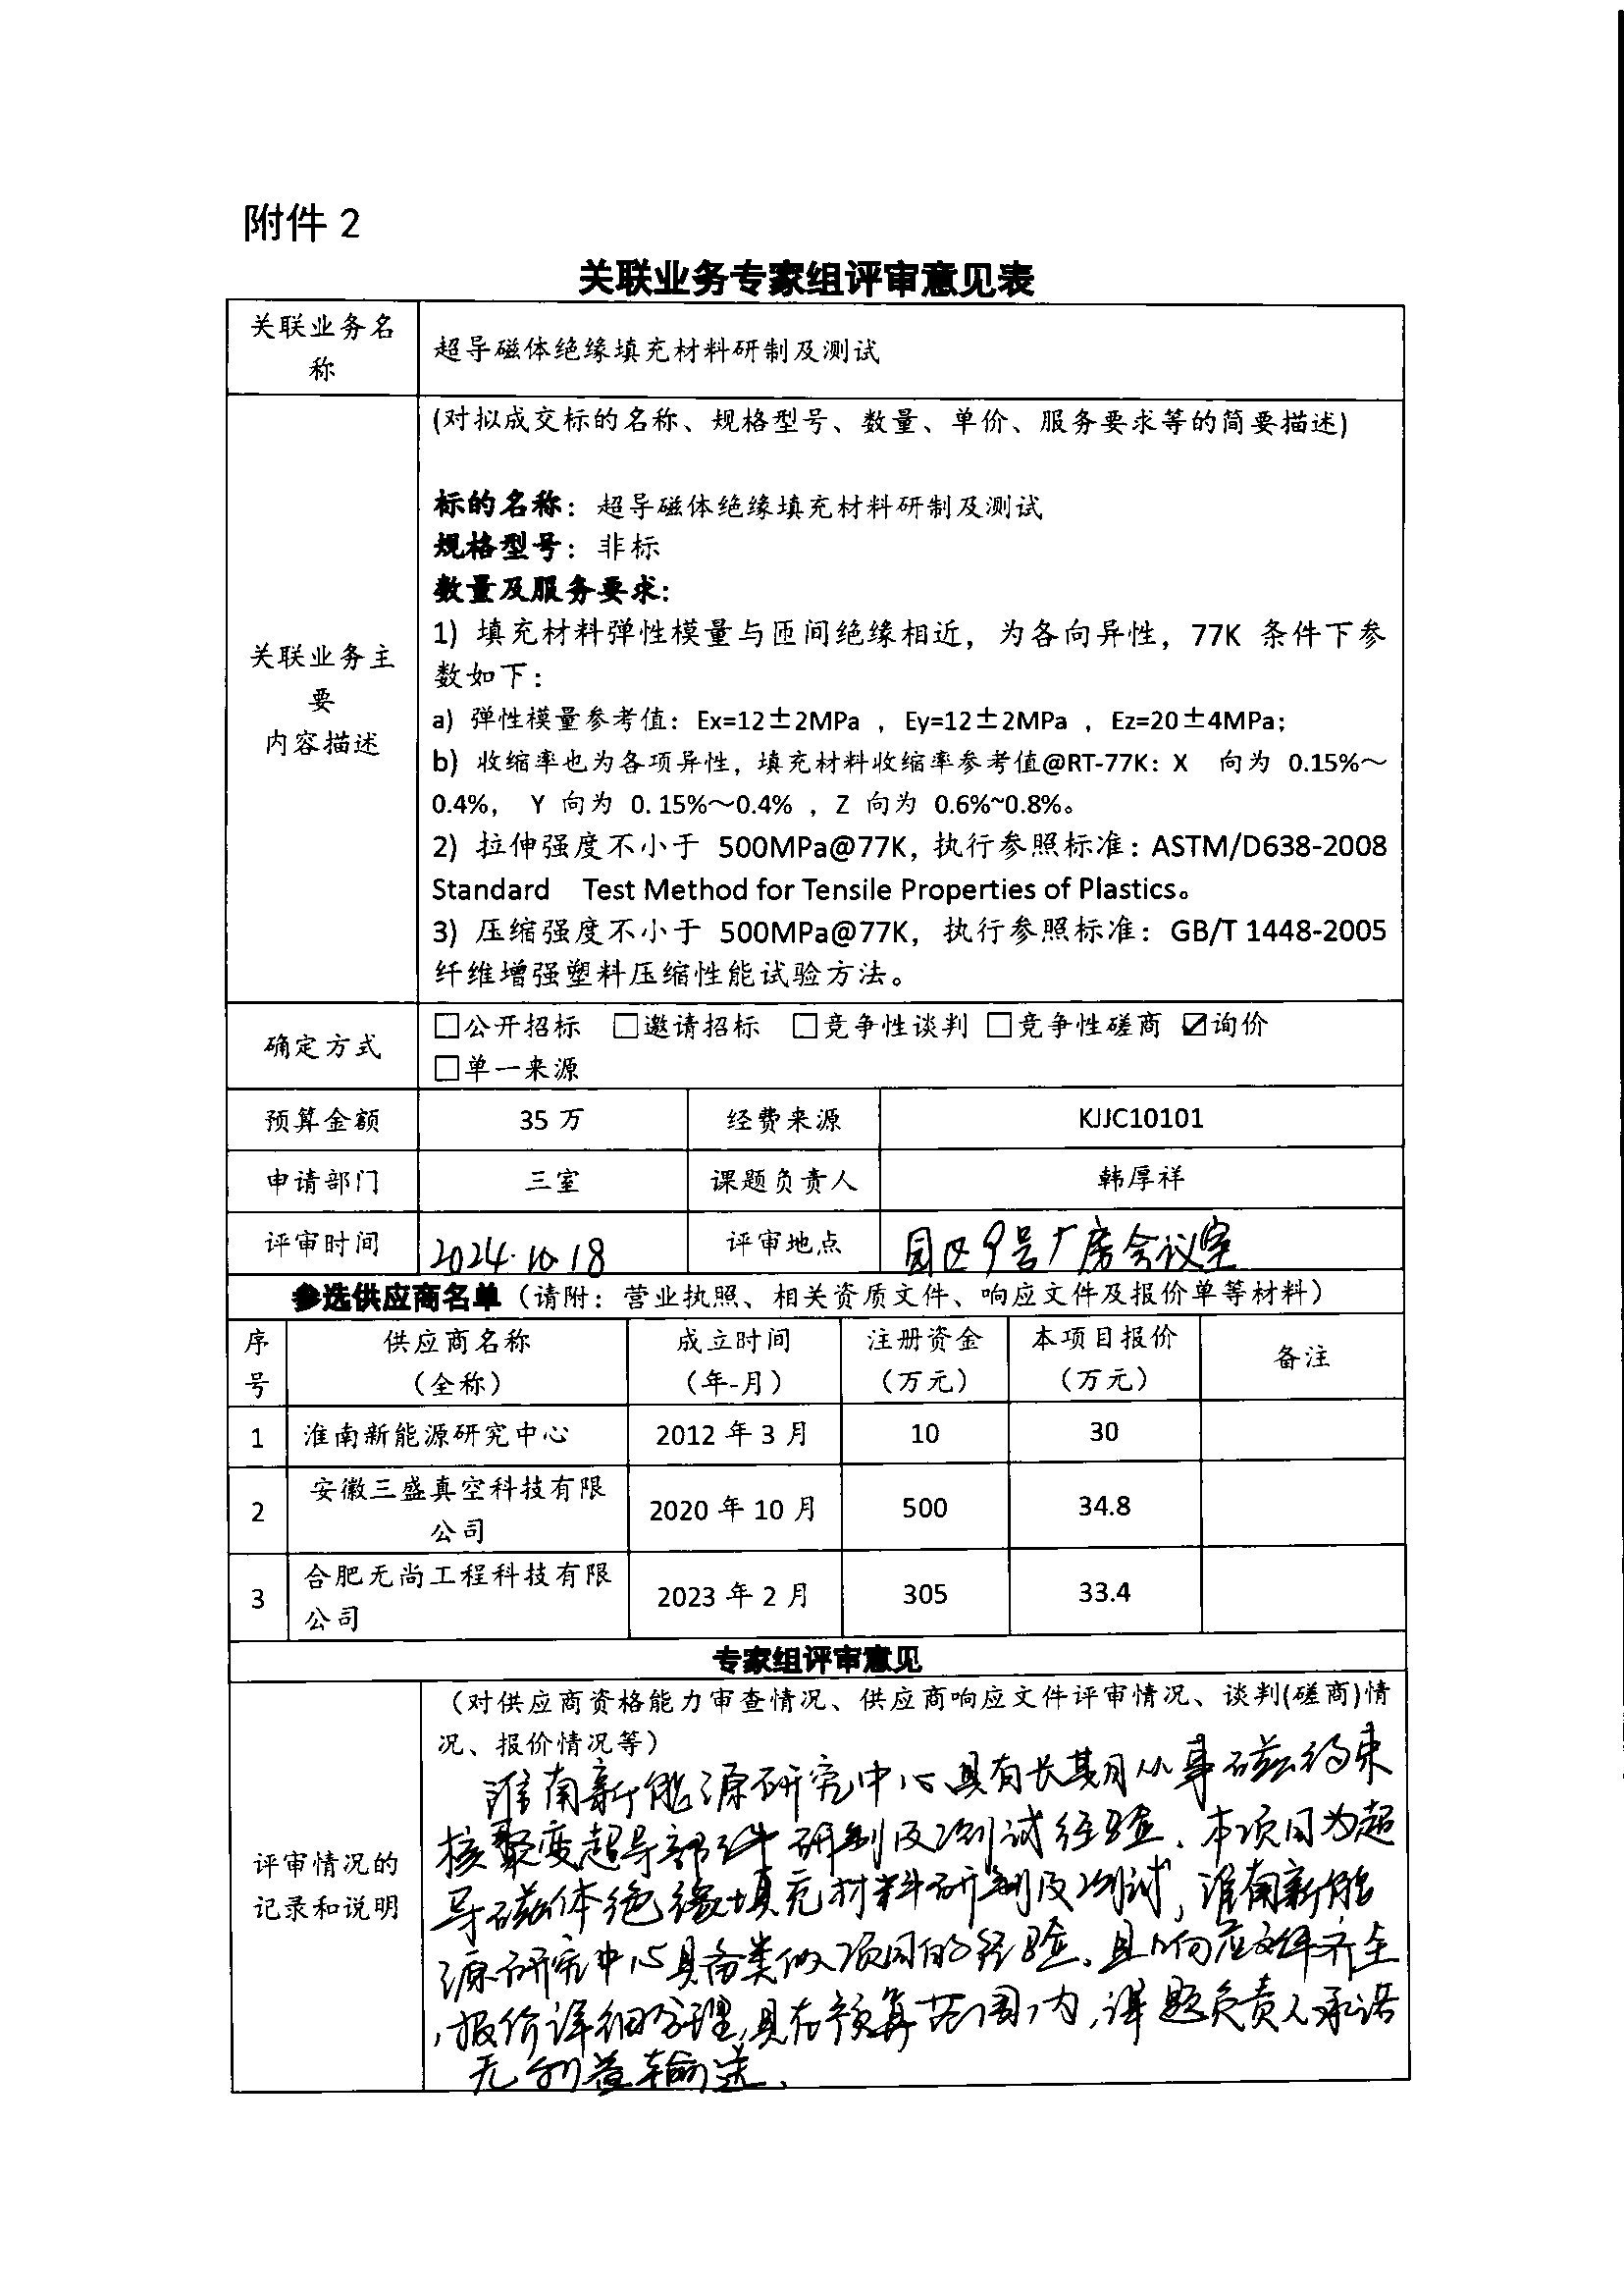 附件 2
关联业务专家组评审意见表
关联业务名
称
超导磁体绝缘填充材料研制及测试
关联业务主
要
内容描述
(对拟成交标的名称、规格型号、数量、单价、服务要求等的简要描述)
标的名称：超导磁体绝缘填充材料研制及测试
规格型号：非标
数量及服务要求：
1) 填充材料弹性模量与匝间绝缘相近，为各向异性，77K 条件下参
数如下：
a) 弹性模量参考值：Ex=12±2MPa ，Ey=12±2MPa ，Ez=20±4MPa；
b) 收缩率也为各项异性，填充材料收缩率参考值@RT-77K：X 向为 0.15%～
0.4%， Y 向为 0.15%～0.4% ，Z 向为 0.6%~0.8%。
2) 拉伸强度不小于 500MPa@77K，执行参照标准：ASTM/D638-2008
Standard Test Method for Tensile Properties of Plastics。
3) 压缩强度不小于 500MPa@77K，执行参照标准：GB/T 1448-2005
纤维增强塑料压缩性能试验方法。
确定方式
□公开招标 □邀请招标 □竞争性谈判 □竞争性磋商 ☑询价
□单一来源
预算金额 35 万 经费来源 KJJC10101
申请部门 三室 课题负责人 韩厚祥
评审时间 2024.10.18 评审地点 园区9号厂房会议室
参选供应商名单（请附：营业执照、相关资质文件、响应文件及报价单等材料）
序
号
供应商名称
（全称）
成立时间
（年-月）
注册资金
（万元）
本项目报价
（万元）
备注
1 淮南新能源研究中心 2012 年 3 月 10 30
2 安徽三盛真空科技有限
公司 2020 年 10 月 500 34.8
3 合肥无尚工程科技有限
公司 2023 年 2 月 305 33.4
专家组评审意见
评审情况的
记录和说明
（对供应商资格能力审查情况、供应商响应文件评审情况、谈判(磋商)情
况、报价情况等）
淮南新能源研究中心具有长期从事磁约束
核聚变超导部件研制及测试经验、本项目为超
导磁体绝缘填充材料研制及测试，淮南新能
源研究中心具备类似项目的经验、且响应文件齐全
，报价详细合理，且在预算范围内，课题负责人承诺
无利益输送、